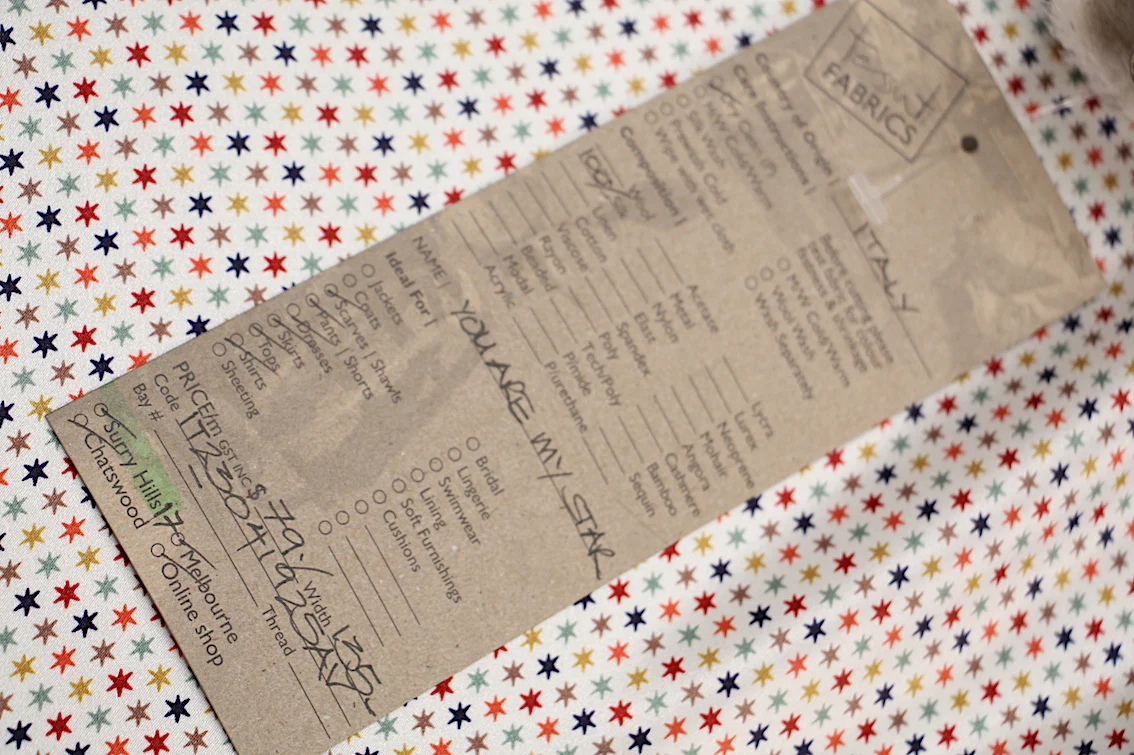 Tessuti
FABRICS
Country of Origin | ITALY
Care Instructions |
Before sewing please
allow fabric for shrinkage
M/W Cold/Warm
Dry Clean Only (P)
M/W Cold/Warm
Wool Wash
Silks Hand Cold
Wash Separately
Prewash Cold
Wipe with Wet Cloth
Composition |
Wool
Acetate
Lycra
100% Linen
Metal
Lurex
Cotton
Nylon
Neoprene
Viscose
Elast
Mohair
Rayon
Spandex
Angora
Bonded
Poly
Cashmere
Modal
Tech/Poly
Bamboo
Acrylic
P/imide
Sequin
P/urethane
NAME YOU ARE MY STAR
Ideal For |
Jackets
Bridal
Coats
Lingerie
Scarves | Shawls
Swimwear
Pants | Shorts
Lining
Dresses
Soft Furnishings
Skirts
Cushions
Tops
Shirts
Sheeting
PRICE/m GST INC $ 79.- Width 135
Code IT230419 2GAV.
Bay # Thread
Surry Hills 17 Melbourne
Chatswood Online shop